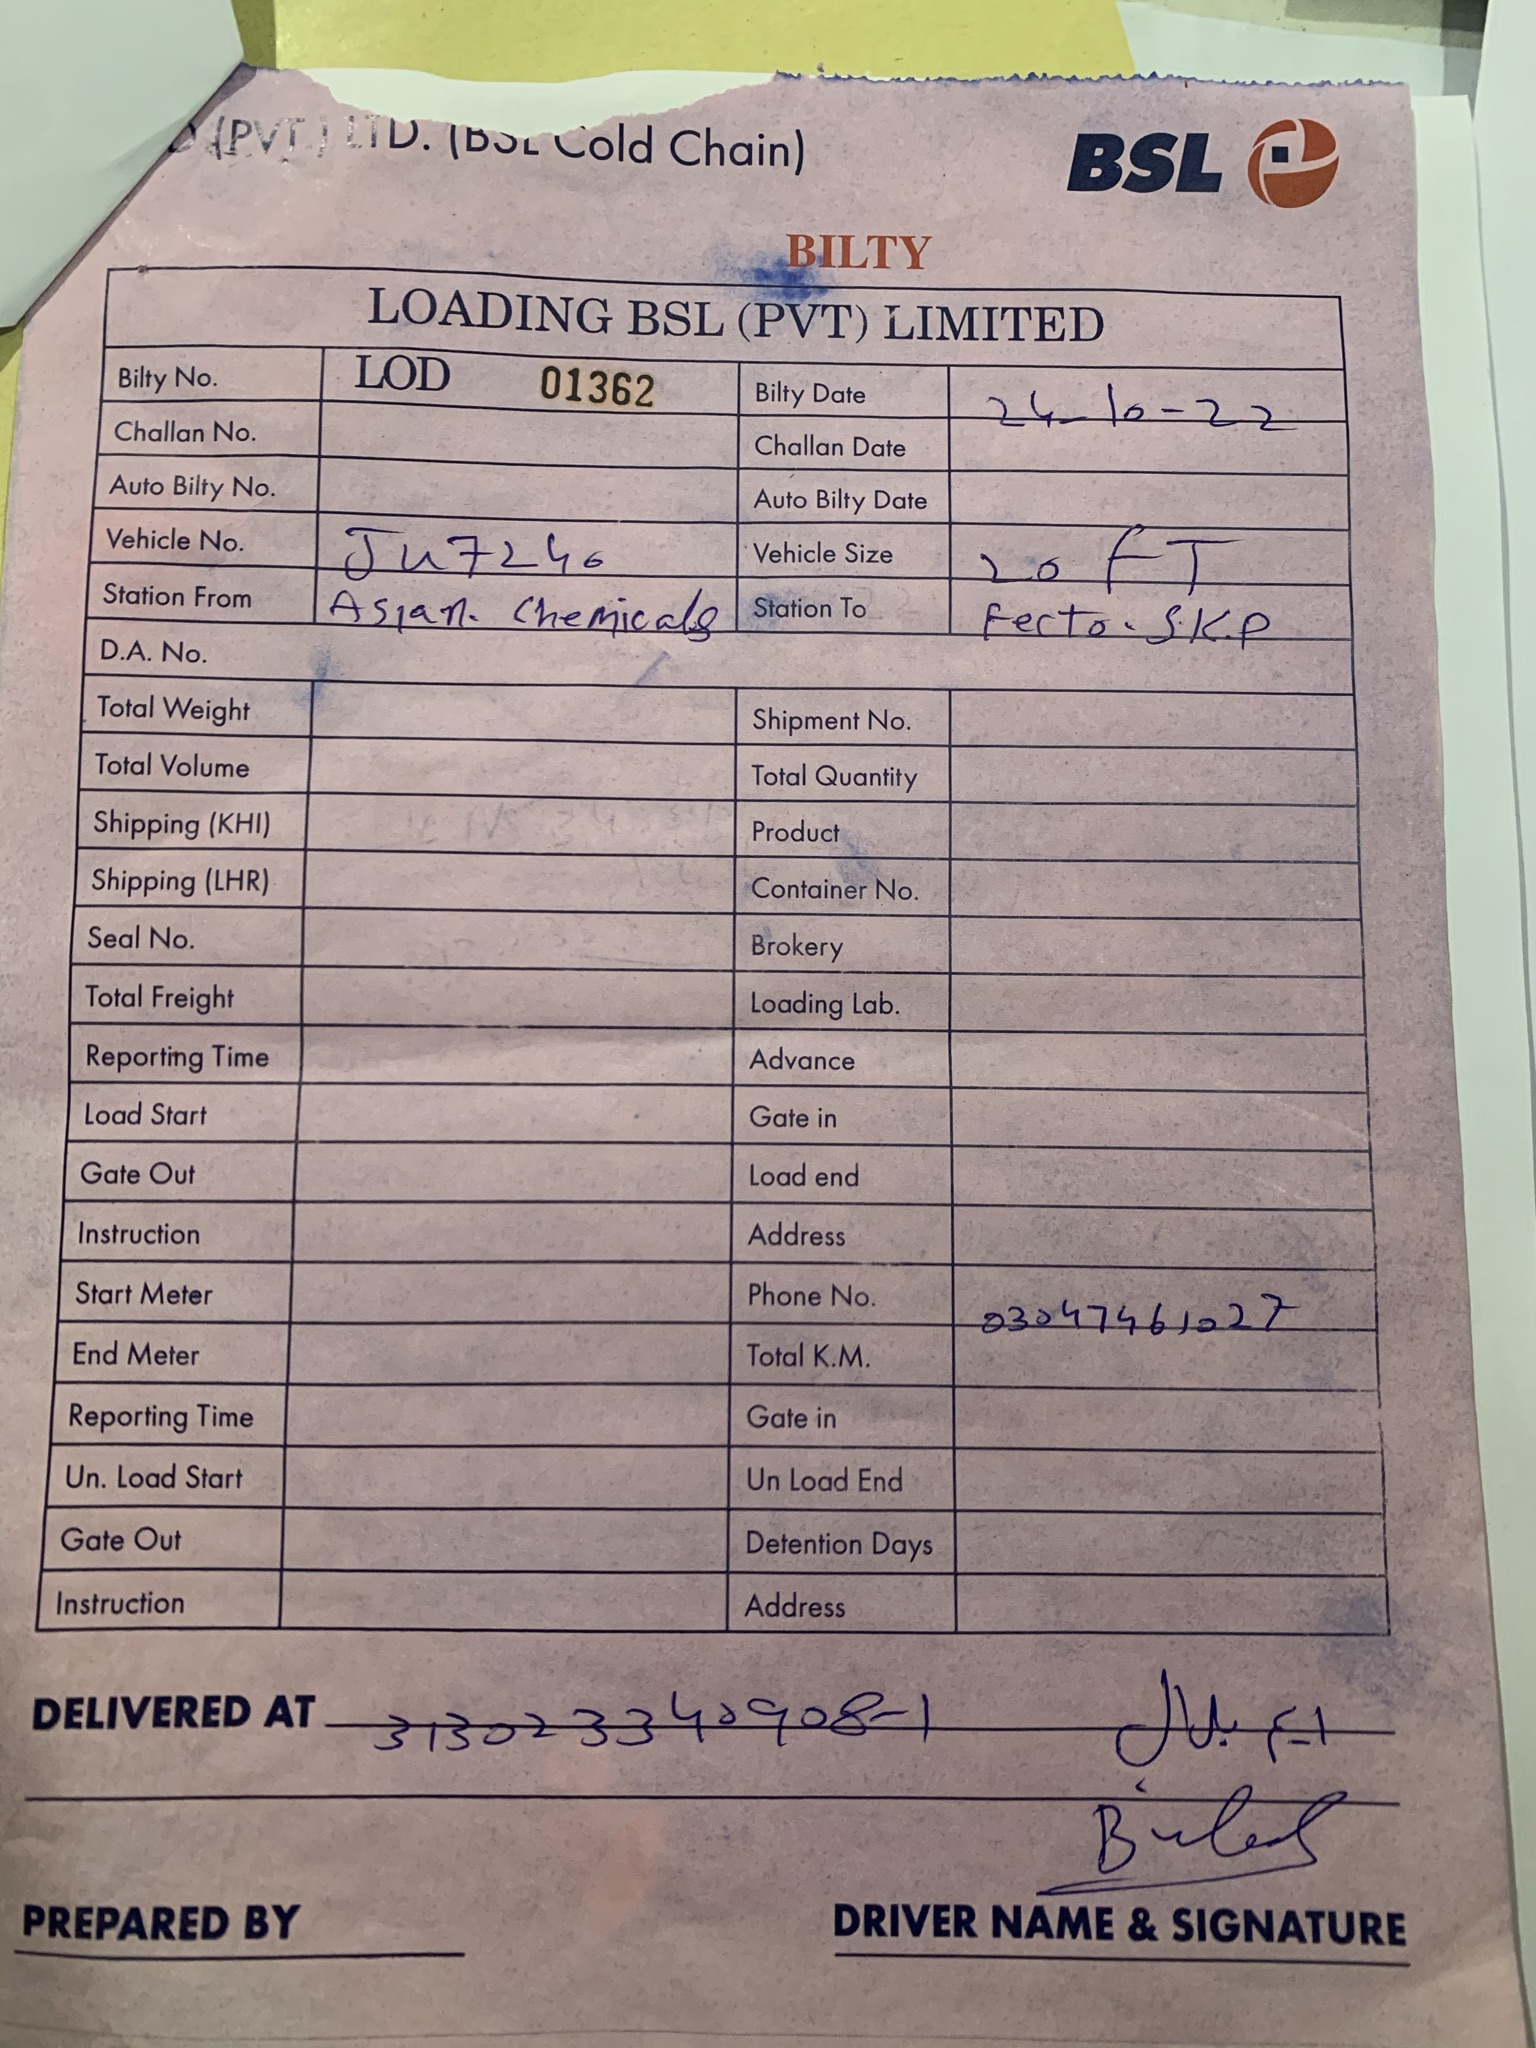 (PVT.) LTD. (BSL Cold Chain)
BSL
BILTY
LOADING BSL (PVT) LIMITED
Bilty No. LOD 01362 Bilty Date 24-10-22
Challan No. Challan Date
Auto Bilty No. Auto Bilty Date
Vehicle No. JU7240 Vehicle Size 20 FT
Station From Asian. Chemicals Station To Fecto. S.K.P
D.A. No.
Total Weight Shipment No.
Total Volume Total Quantity
Shipping (KHI) Product
Shipping (LHR) Container No.
Seal No. Brokery
Total Freight Loading Lab.
Reporting Time Advance
Load Start Gate in
Gate Out Load end
Instruction Address
Start Meter Phone No. 03047461027
End Meter Total K.M.
Reporting Time Gate in
Un. Load Start Un Load End
Gate Out Detention Days
Instruction Address
DELIVERED AT 313023340908-1 ایم بلال
Bilal
PREPARED BY DRIVER NAME & SIGNATURE